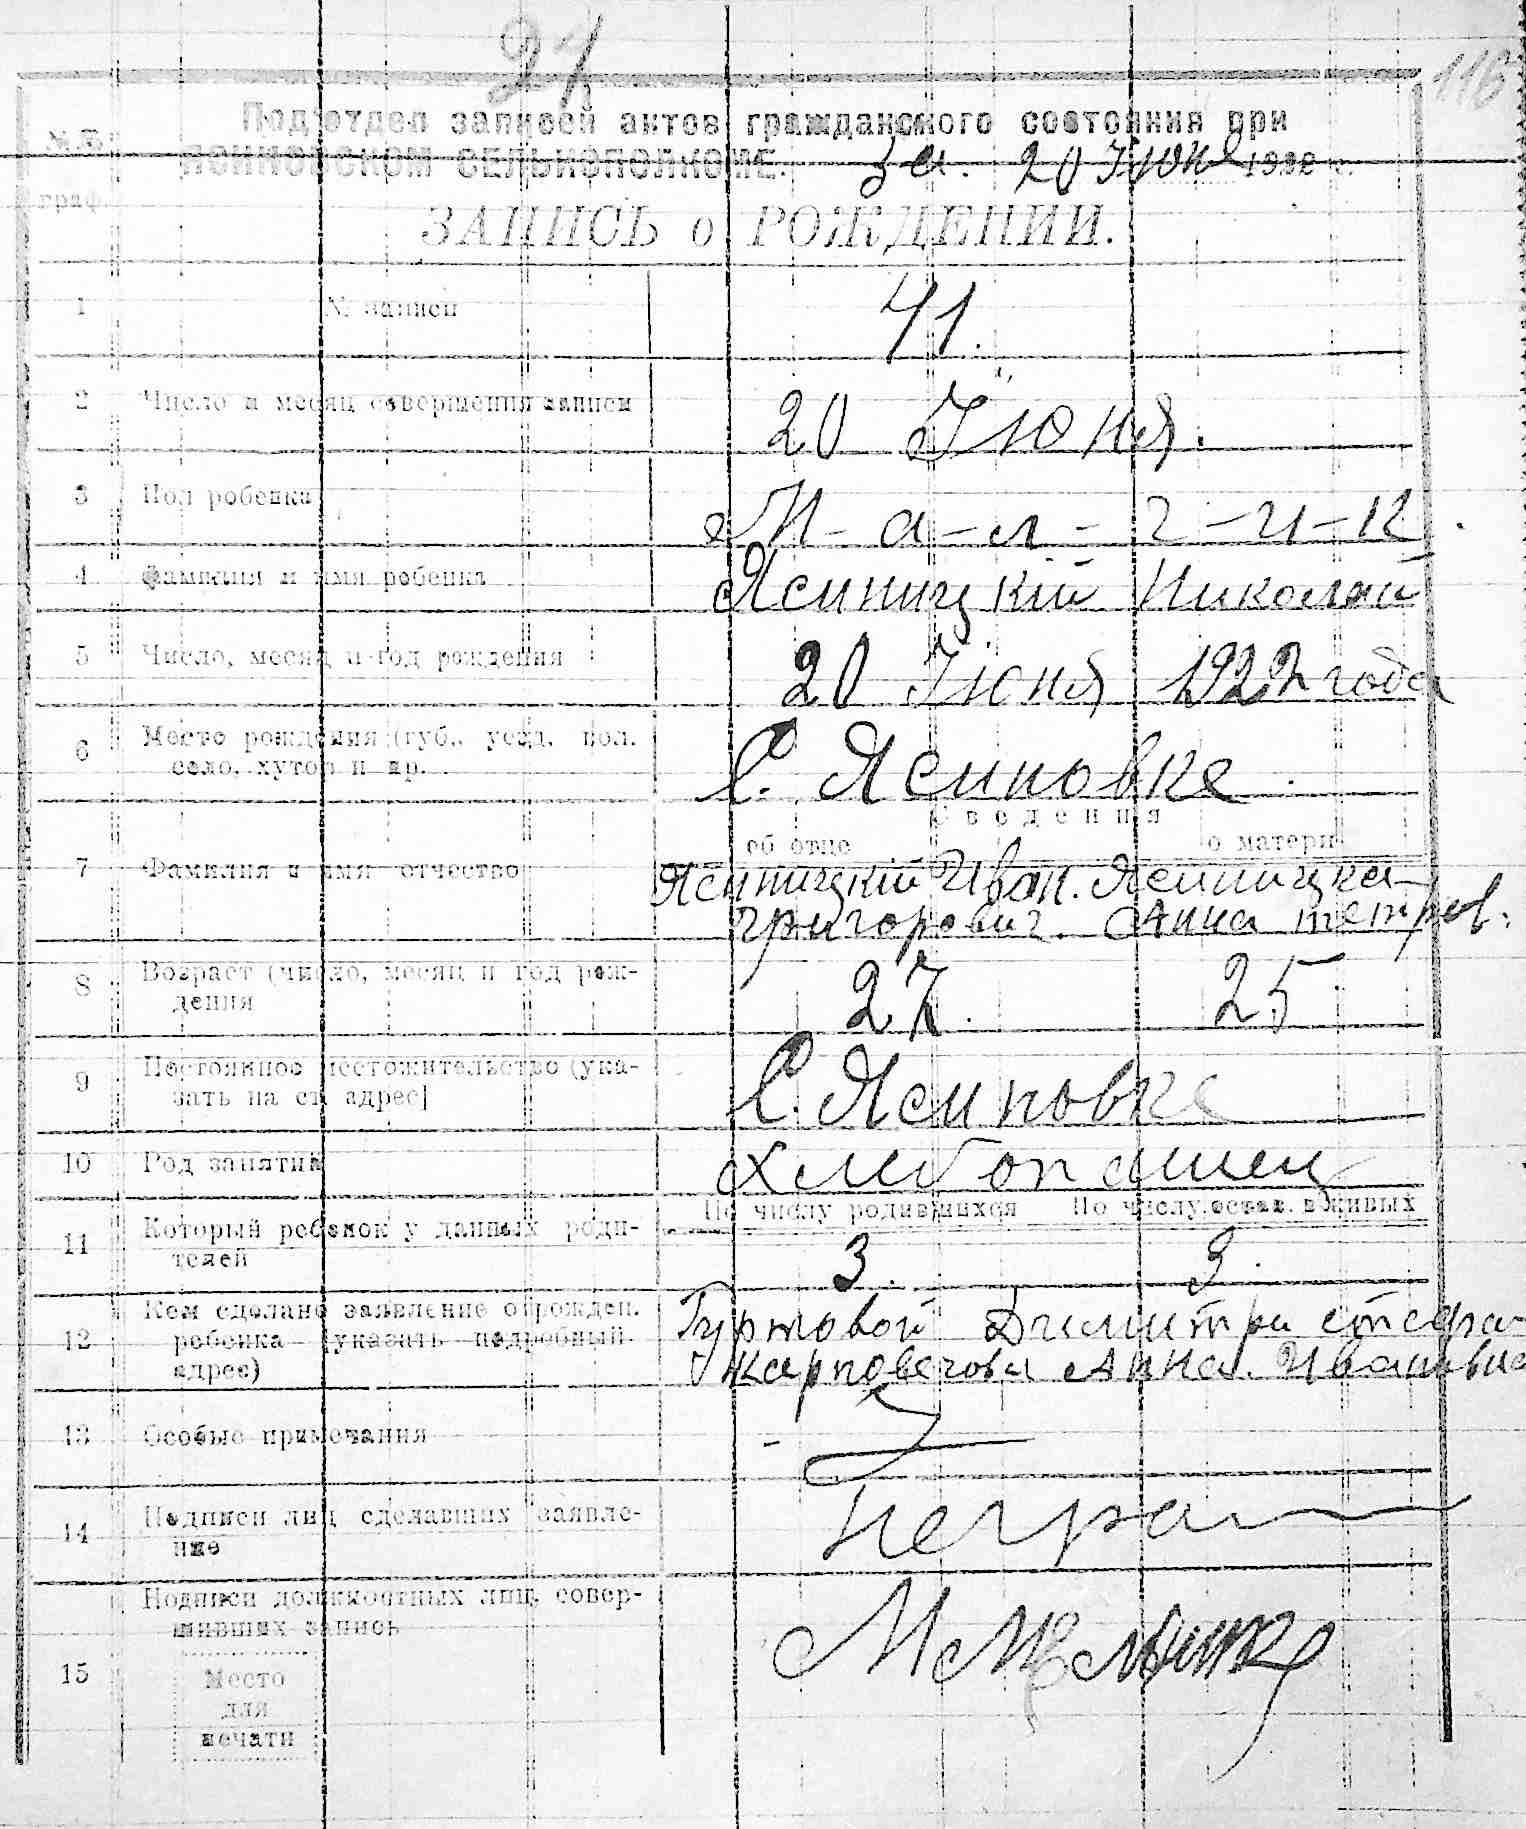 27
116
Подотдел записей актов гражданского состояния при
ЯСИНОВСКОМ СЕЛЬИСПОЛКОМЕ. За. 20 Іюня 1922 г.
№№ граф
ЗАПИСЬ о РОЖДЕНИИ.
1 № записи 41.
2 Число и месяц совершения записи 20 Іюня.
3 Пол ребенка М-а-л-ч-и-к.
4 Фамилия и имя ребенка Ясиницкій Николай
5 Число, месяц и год рождения 20 Іюня 1922 года
6 Место рождения (губ., уезд, вол.
село, хутор и пр. С. Ясиновке.
Сведения
об отце о матери
7 Фамилия и имя отчество Ясиницкій Иван. Ясиницкая
Григорович. Анна петров.
8 Возраст (число, месяц и год рож-
дения 27. 25
9 Постоянное местожительство (ука-
зать на ст. адрес) С. Ясиновке
10 Род занятий хлибопашец
По числу родившихся По числу остав. в живых
11 Который ребенок у данных роди-
телей 3. 3.
12 Кем сделано заявление о рожден.
ребенка (указать подробный
адрес)
Гуртовой Дмитри
Анна. Ивановна
13 Особые примечания -
14 Подписи лиц сделавших заявле-
ние
Подписи должностных лиц, совер-
шивших запись
15 Место
для
печати